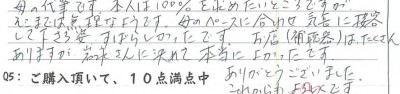 母の代筆です。本人は100%を求めたいところですが
そこまでは無理なようです。母のペースに合わせ気長に接客
して下さる姿 すばらしかったです。お店(補聴器)はたくさん
ありますが 岩永さんに決めて本当によかったです。
ありがとうございました。
Q5：ご購入頂いて、10点満点中
これからも よろしくです